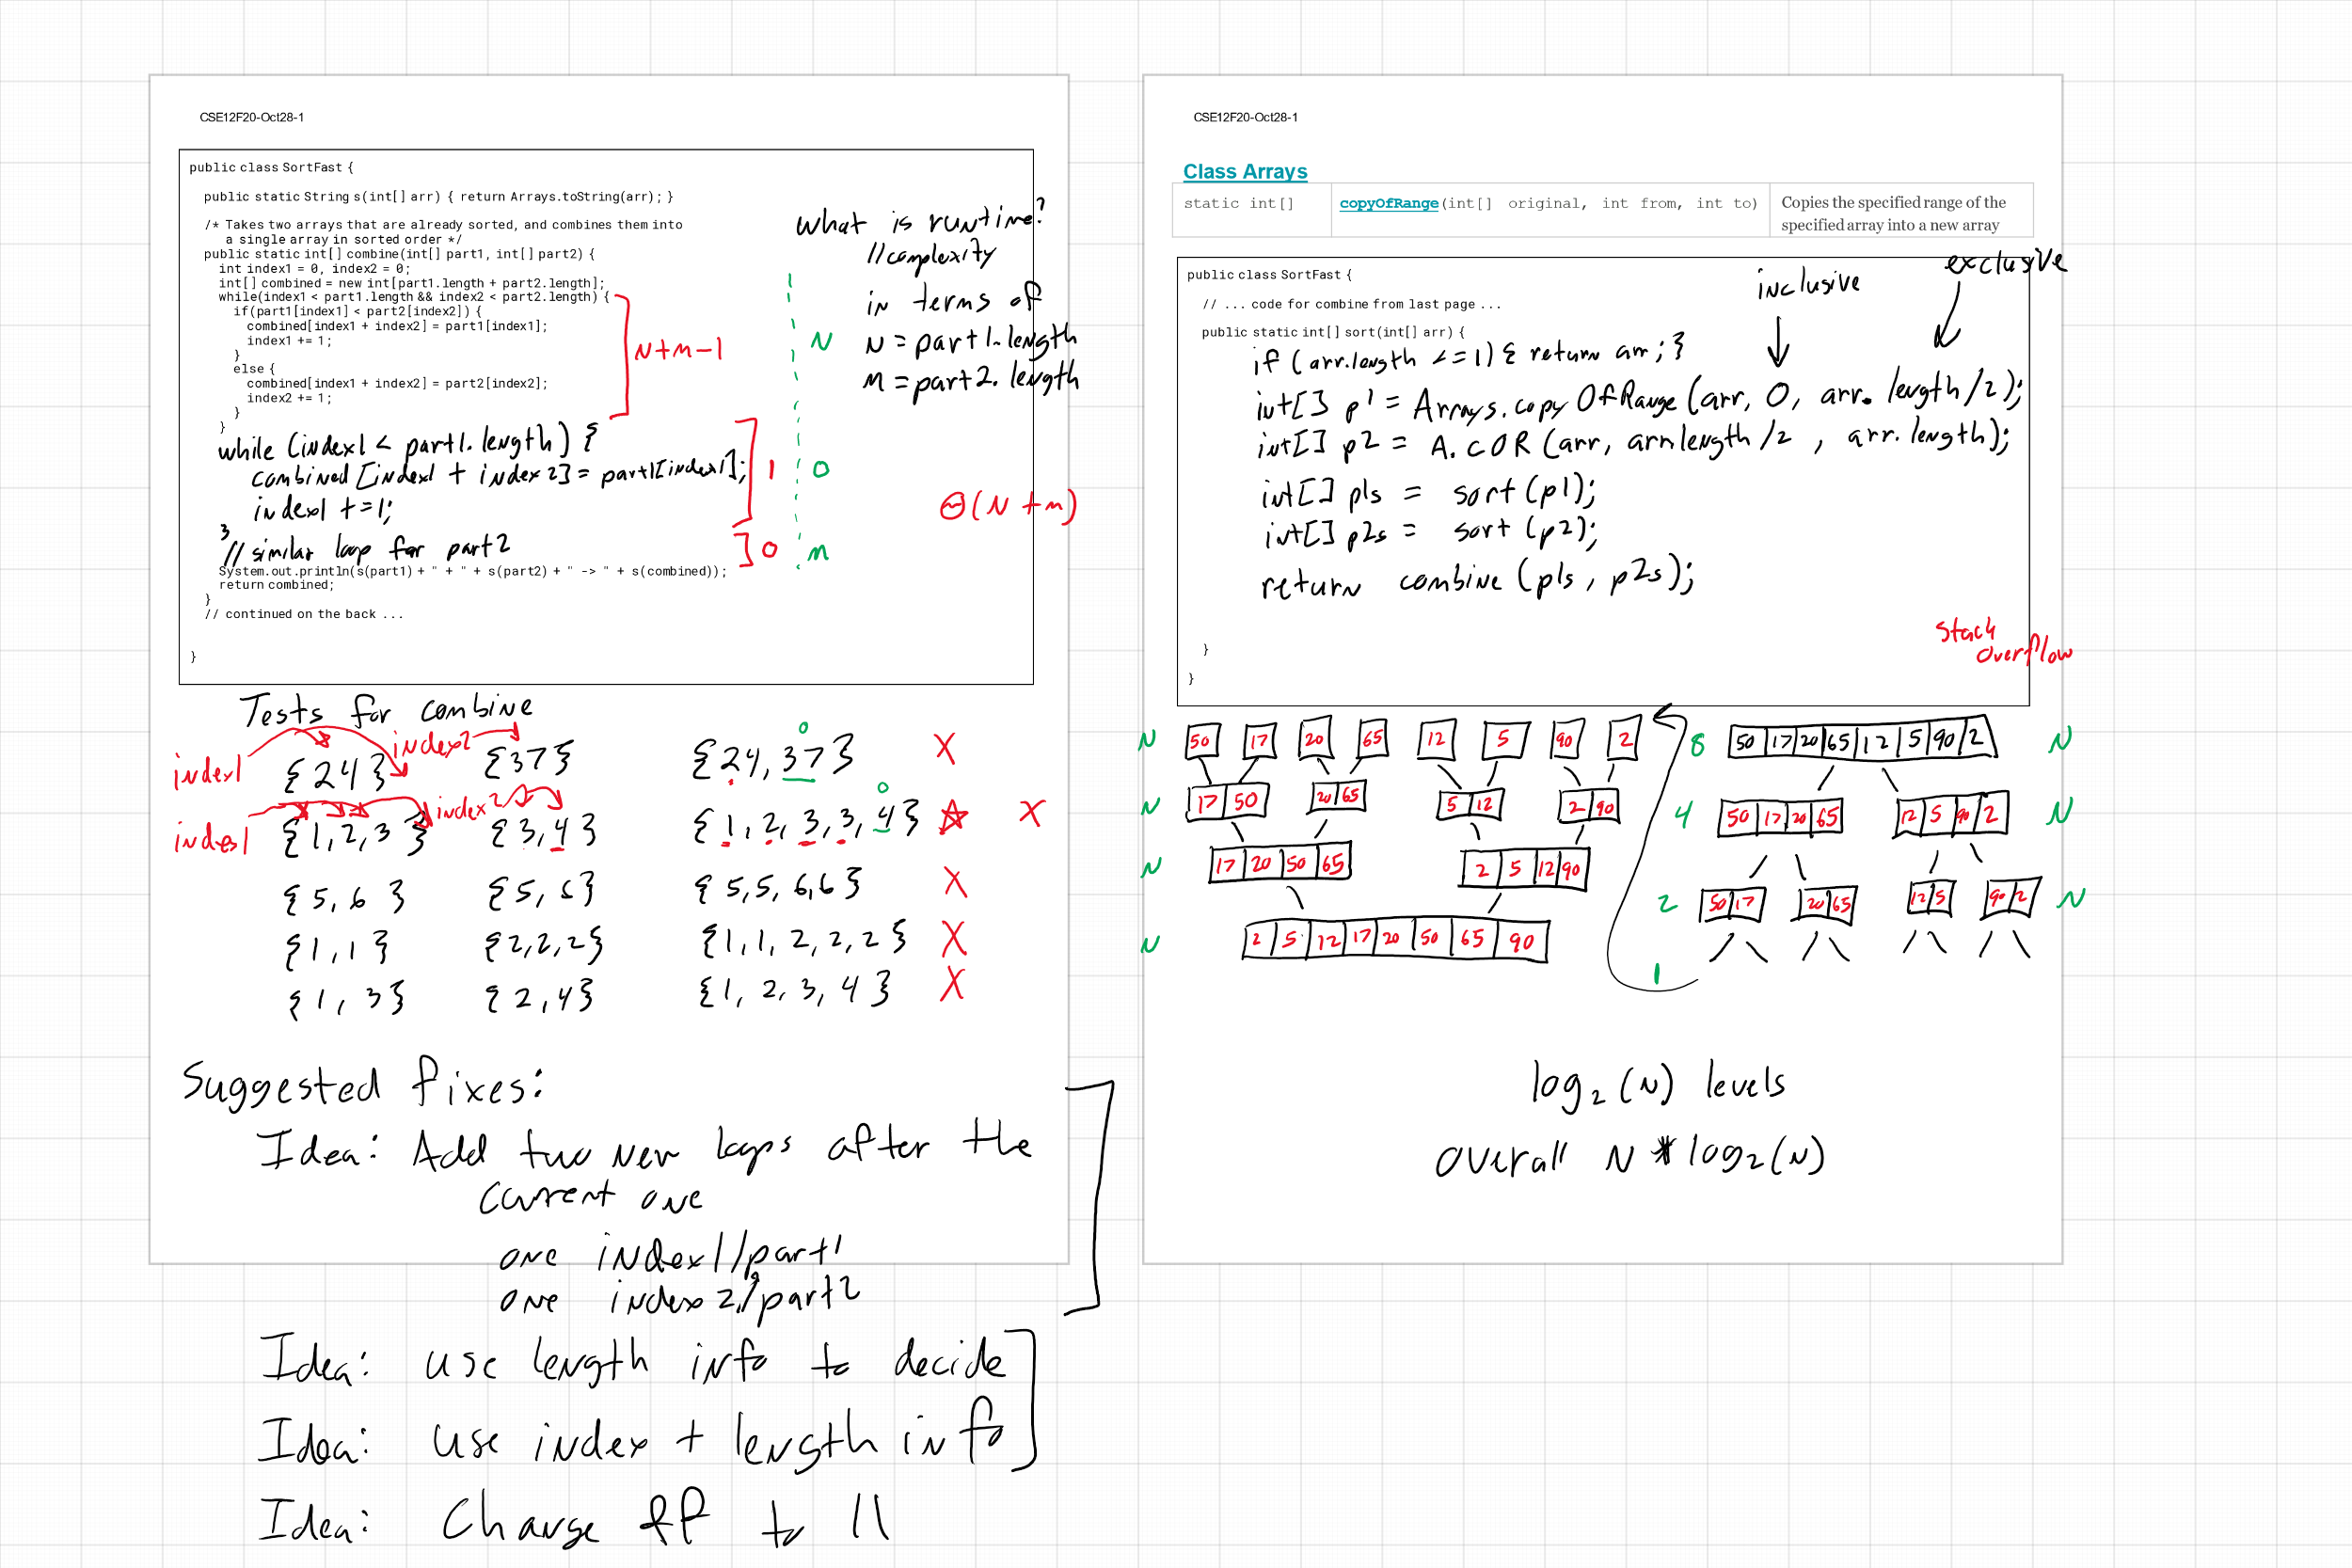 CSE12F20-Oct28-1
public class SortFast {
public static String s(int[] arr) { return Arrays.toString(arr); }
/* Takes two arrays that are already sorted, and combines them into
a single array in sorted order */
public static int[] combine(int[] part1, int[] part2) {
int index1 = 0, index2 = 0;
int[] combined = new int[part1.length + part2.length];
while(index1 < part1.length && index2 < part2.length) {
if(part1[index1] < part2[index2]) {
combined[index1 + index2] = part1[index1];
index1 += 1;
}
else {
combined[index1 + index2] = part2[index2];
index2 += 1;
}
}
while (index1 < part1.length) {
combined [index1 + index2] = part1[index1];
index1 += 1;
}
// similar loop for part2
System.out.println(s(part1) + " + " + s(part2) + " -> " + s(combined));
return combined;
}
// continued on the back ...
}
N+m-1
1
0
N
0
m
what is runtime?
//complexity
in terms of
N = part1.length
M = part2.length
Θ(N+m)
Tests for combine
index1 index2
{24} {37} {24, 37} X
0
index1 index2
{1,2,3} {3,4} {1,2,3,3,4} ☆ X
0
{5,6} {5,6} {5,5,6,6} X
{1,1} {2,2,2} {1,1,2,2,2} X
{1,3} {2,4} {1,2,3,4} X
Suggested fixes:
Idea: Add two new loops after the
current one
one index1/part1
one index2/part2
Idea: use length info to decide
Idea: use index + length info
Idea: Change && to ||
CSE12F20-Oct28-1
Class Arrays
static int[] copyOfRange(int[] original, int from, int to) Copies the specified range of the
specified array into a new array
inclusive
exclusive
public class SortFast {
// ... code for combine from last page ...
public static int[] sort(int[] arr) {
if (arr.length <=1) { return arr; }
int[] p1 = Arrays.copyOfRange(arr, 0, arr.length/2);
int[] p2 = A.COR (arr, arr.length/2, arr.length);
int[] p1s = sort(p1);
int[] p2s = sort(p2);
return combine (p1s, p2s);
}
}
stack
overflow
N 50 17 20 65 12 5 90 2
N 17 50 20 65 5 12 2 90
N 17 20 50 65 2 5 12 90
N 2 5 12 17 20 50 65 90
8 50 17 20 65 12 5 90 2 N
4 50 17 20 65 12 5 90 2 N
2 50 17 20 65 12 5 90 2 N
1
log2(N) levels
overall N * log2(N)